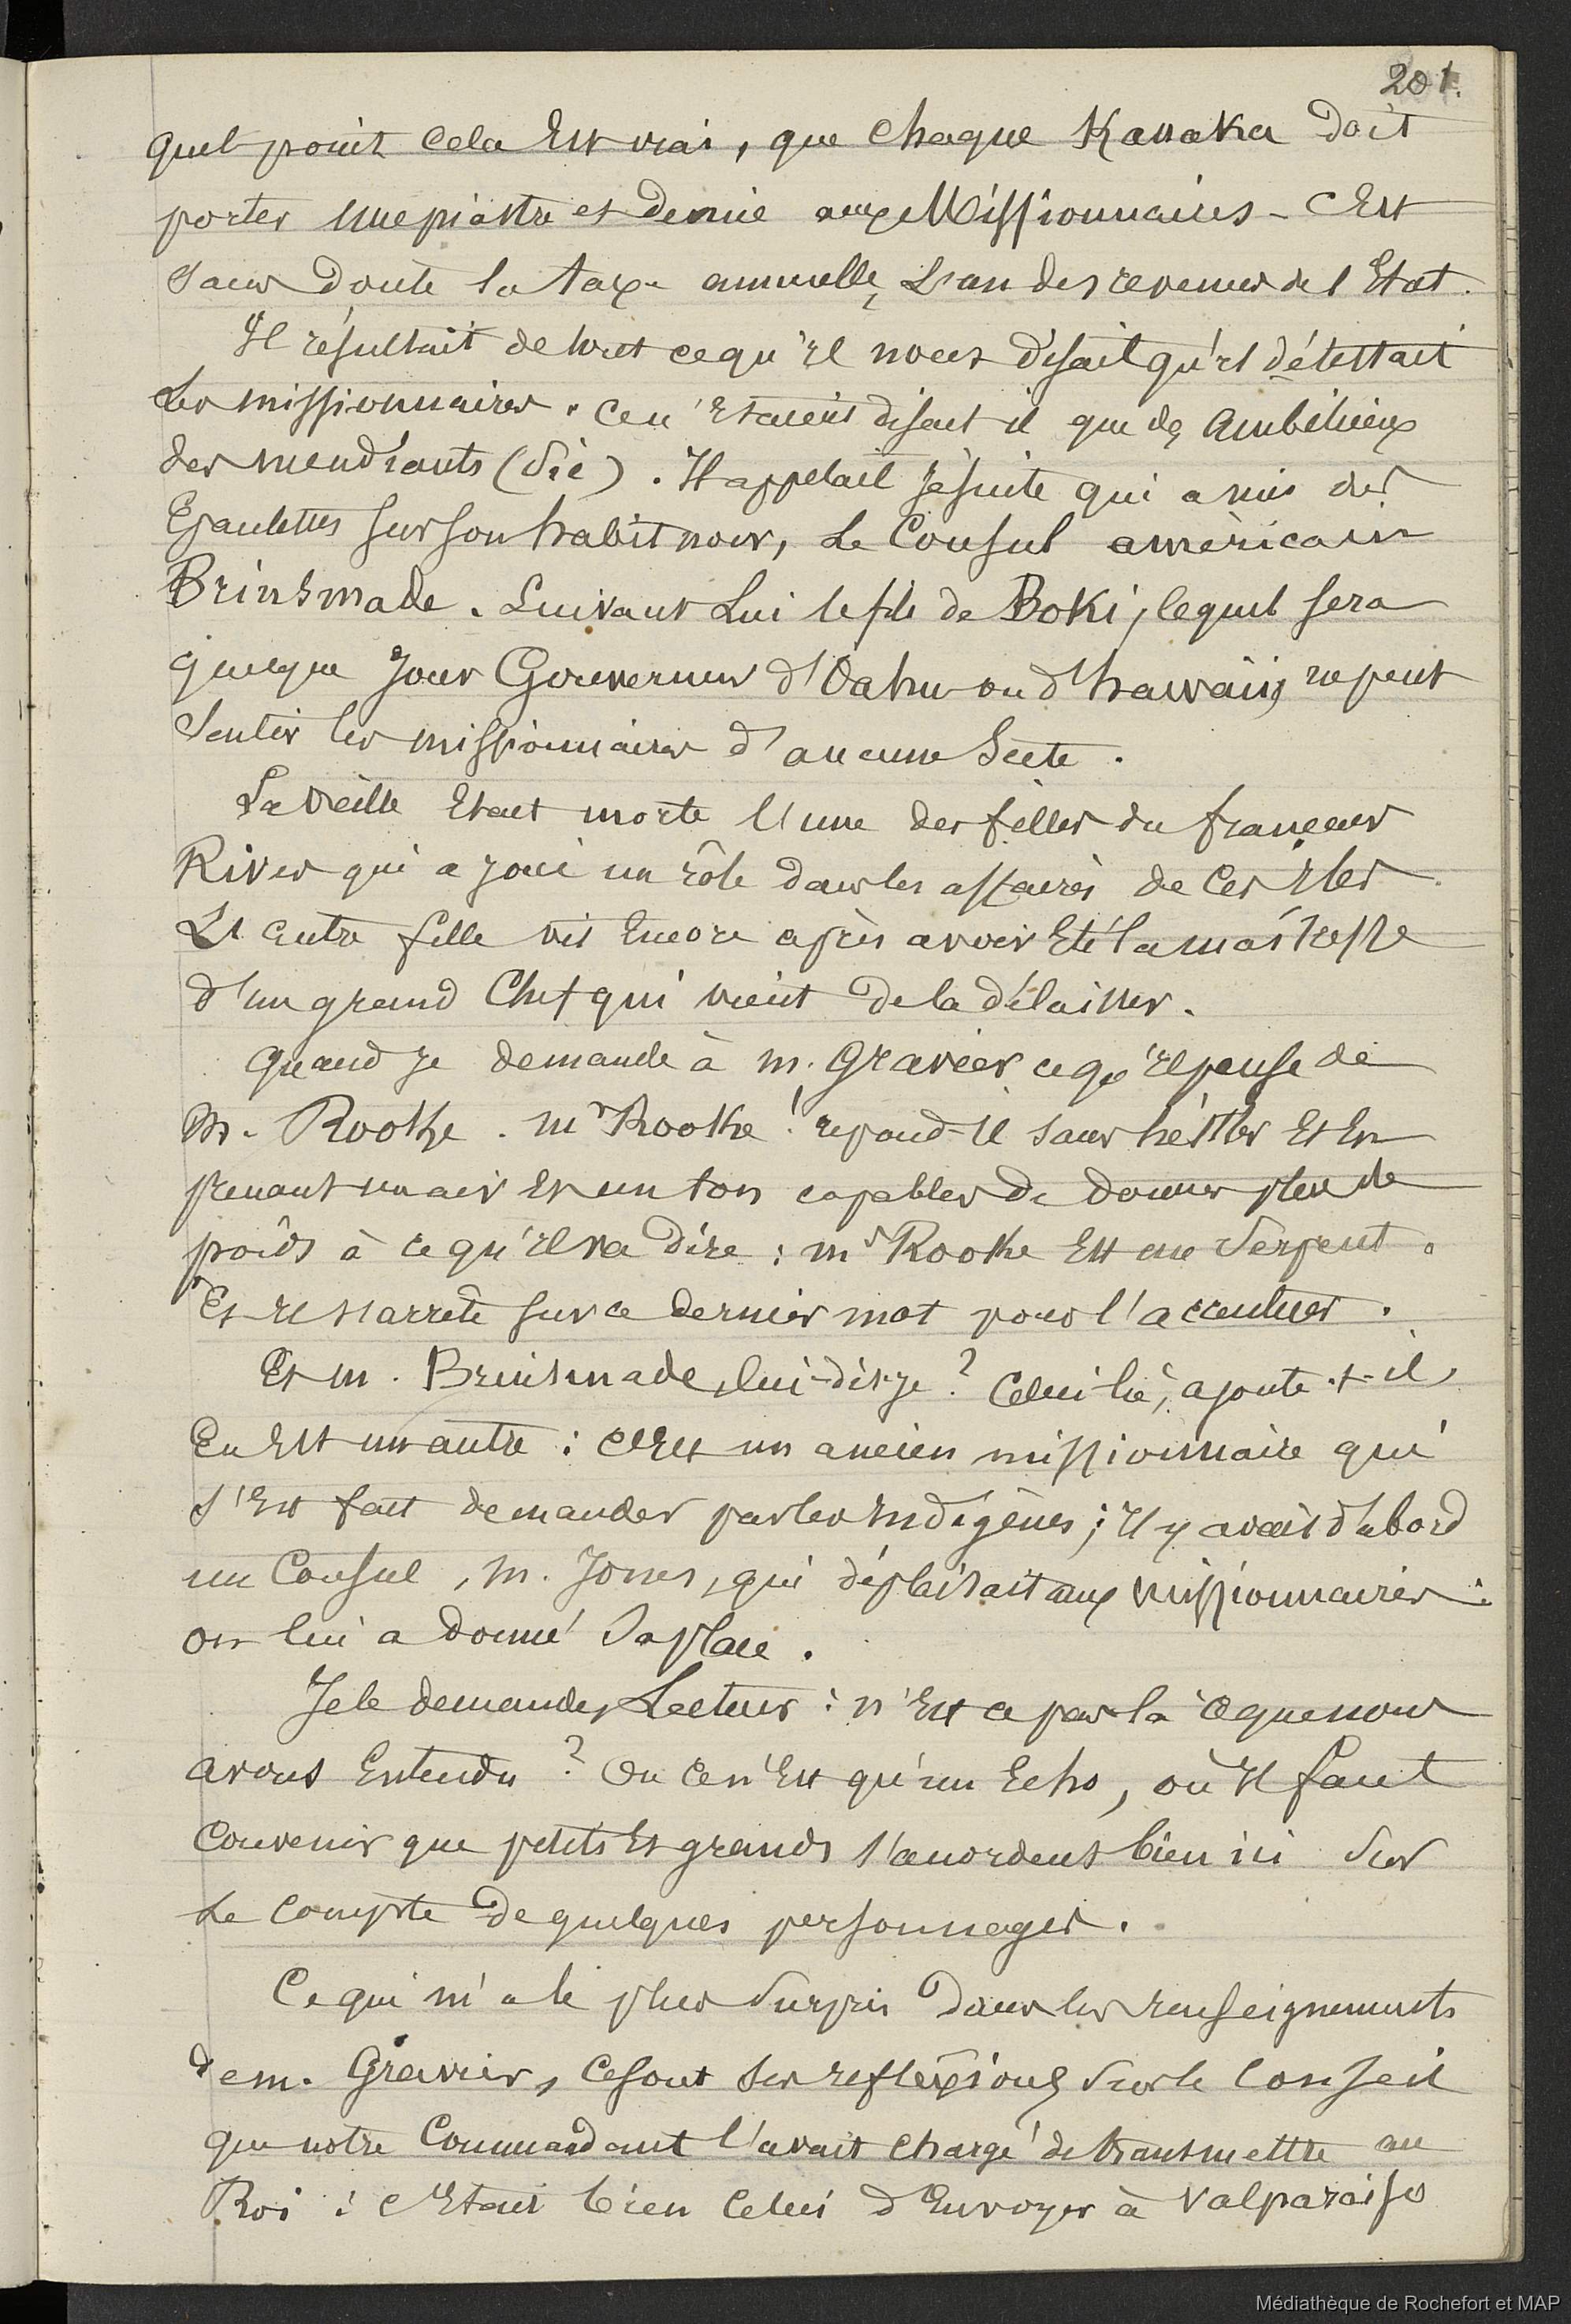 201.
quel point cela Est vrai, que chaque Kanaka doit
porter une piastre et demie aux Missionnaires - C'Est
sans doute la taxe annuelle, L'un des revenus de l'Etat.
Il résultait de tout ce qu'il nous disait qu'il détestait
Les missionnaires. Ce n'Etaient disait il que des ambitieux
des mendiants (Sic). Il appelait jésuite qui a mis des
Epaulettes sur son habit noir, Le Consul américain
Brinsmade. Suivant Lui le fils de Boki, lequel sera
quelque Jour Gouverneur d'Oahu ou d'hawaii, ne peut
Sentir les missionnaires d'aucune Secte.
La Veille Etait morte l'une des filles du français
Rives qui a joué un rôle dans les affaires de Ces Iles.
L'autre fille vit Encore après avoir Eté la maîtresse
d'un grand Chef qui vient de la délaisser.
Quand je demande à m. Gravier ce qu'il pense de
M. Rooke. mr Rooke! repond-il sans hésiter Et En
prenant un air Et un ton capables de donner plus de
poids à ce qu'il va dire : mr Rooke Est un Serpent.
Et il s'arrête sur ce dernier mot pour l'accentuer.
Et m. Brinsmade, lui-dis-je? Celui là, ajoute-t-il,
En Est un autre : C'Est un ancien missionnaire qui
s'Est fait demander par les Indigènes ; Il y avait d'abord
un Consul, M. Jones, qui déplaisait aux missionnaires :
on lui a donné Sa place.
Je le demande, Lecteur : n'Est ce pas là ce que nous
avons Entendu? Ou ce n'Est qu'un Echo, où Il faut
Convenir que petits Et grands s'accordent bien ici Sur
Le compte de quelques personnages.
Ce qui m'a le plus Surpris dans les renseignements
de m. Gravier, ce sont ses reflexions sur le Conseil
que notre Commandant l'avait chargé de transmettre au
Roi : c'Etait bien Celui d'Envoyer à Valparaiso
Médiathèque de Rochefort et MAP